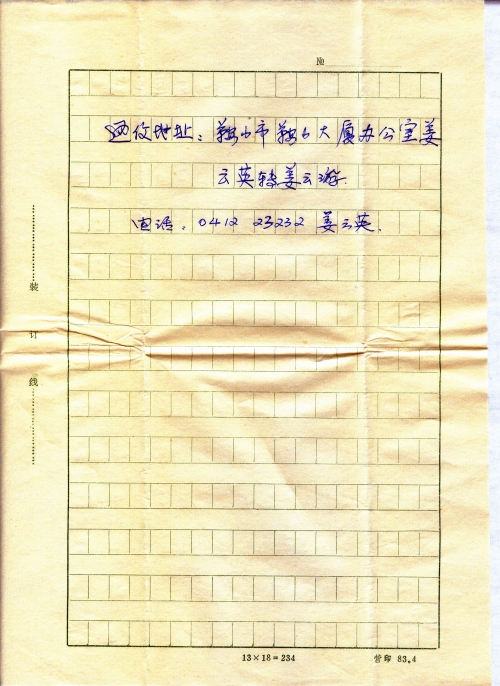 №
通信地址：鞍山市鞍山大厦办公室姜
云英转姜云游.
电话：0412 23232 姜云英.
装
订
线
13×18=234
营印 83.4